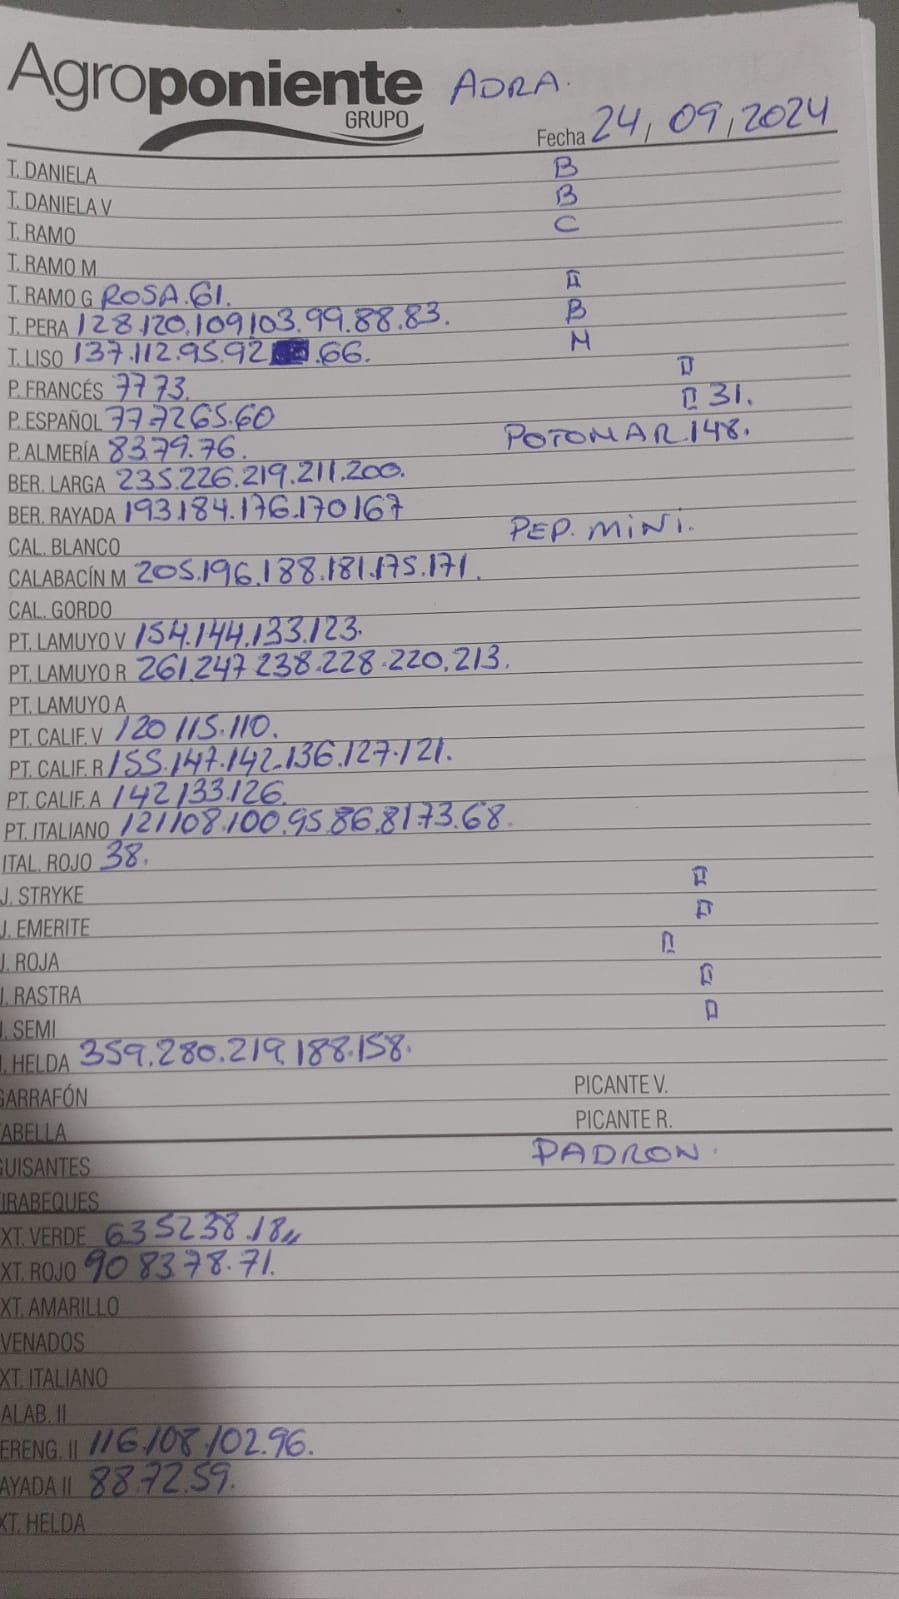 Agroponiente ADRA.
GRUPO
Fecha 24, 09, 2024
T. DANIELA B
T. DANIELA V B
T. RAMO C
T. RAMO M
T. RAMO G ROSA.61. II
T. PERA 128.120.109103.99.88.83. B
T. LISO 137.112.95.92 .66. M
P. FRANCÉS 77 73. II
P. ESPAÑOL 77.7265.60 II 31.
P. ALMERÍA 8379.76. POTOMAR.148.
BER. LARGA 235.226.219.211.200.
BER. RAYADA 193184.176.170167
CAL. BLANCO PEP. MINI.
CALABACÍN M 205.196.188.181.175.171.
CAL. GORDO
PT. LAMUYO V 154.144.133.123.
PT. LAMUYO R 261.247 238.228.220.213.
PT. LAMUYO A
PT. CALIF. V 120 115.110.
PT. CALIF. R 155.147.142.136.127.121.
PT. CALIF. A 142133.126.
PT. ITALIANO 121108.100.95.86.8173.68.
ITAL. ROJO 38.
J. STRYKE II
J. EMERITE II
J. ROJA II
J. RASTRA II
J. SEMI II
J. HELDA 359.280.219.188.158.
GARRAFÓN PICANTE V.
TABELLA PICANTE R.
GUISANTES PADRON.
TIRABEQUES
XT. VERDE 635238.18,,
XT. ROJO 90 8378.71.
XT. AMARILLO
VENADOS
XT. ITALIANO
ALAB. II
ERENG. II 116.108.102.96.
AYADA II 88.72.59.
XT. HELDA